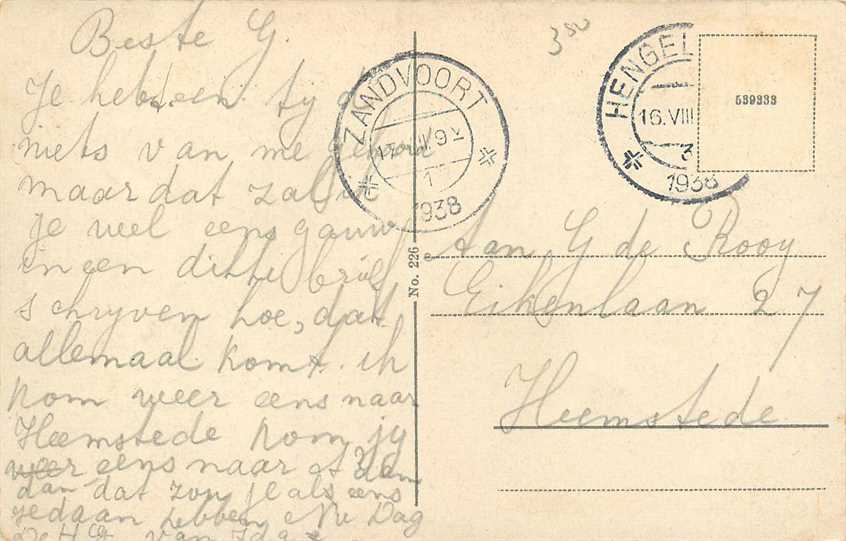 Beste G.
Je hebt een tij al
niets van me gehoord
maar dat zal ik
je wel eens gauw
in een dikke brief
schryven hoe, dat
allemaal komt. ik
kom weer eens naar
Heemstede kom jy
eens naar
dan dat zou je als eens
gedaan hebben Nu Dag
van
ZANDVOORT
1938
HENGEL
16.VIII
3
1938
539333
350
No. 226
Aan G de Rooy
Eikenlaan 27
Heemstede